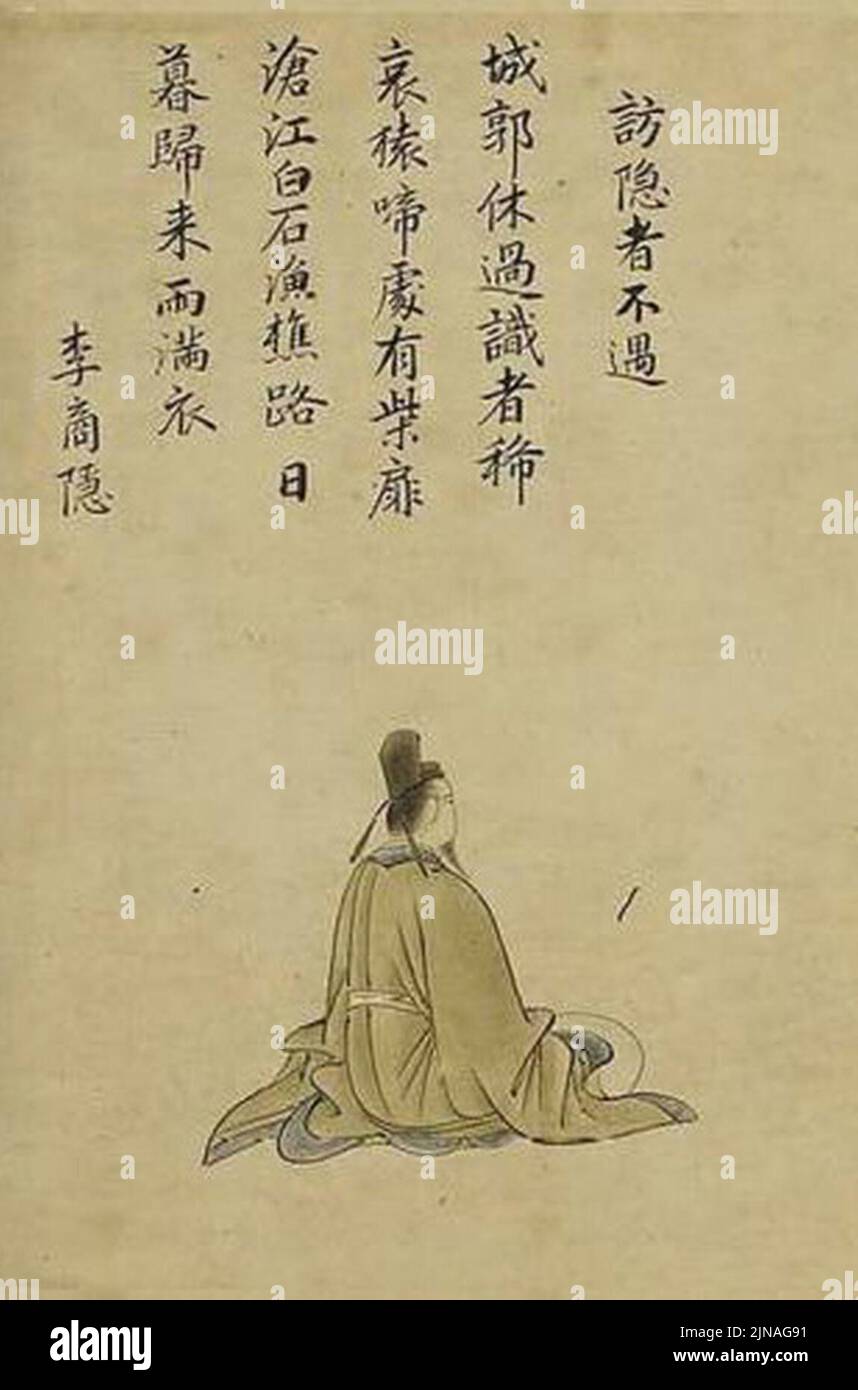 訪隐者不遇
城郭休過識者稀
哀猿啼處有柴扉
滄江白石漁樵路日
暮歸来雨满衣
李商隱
alamy
Image ID: 2JNAG91
www.alamy.com